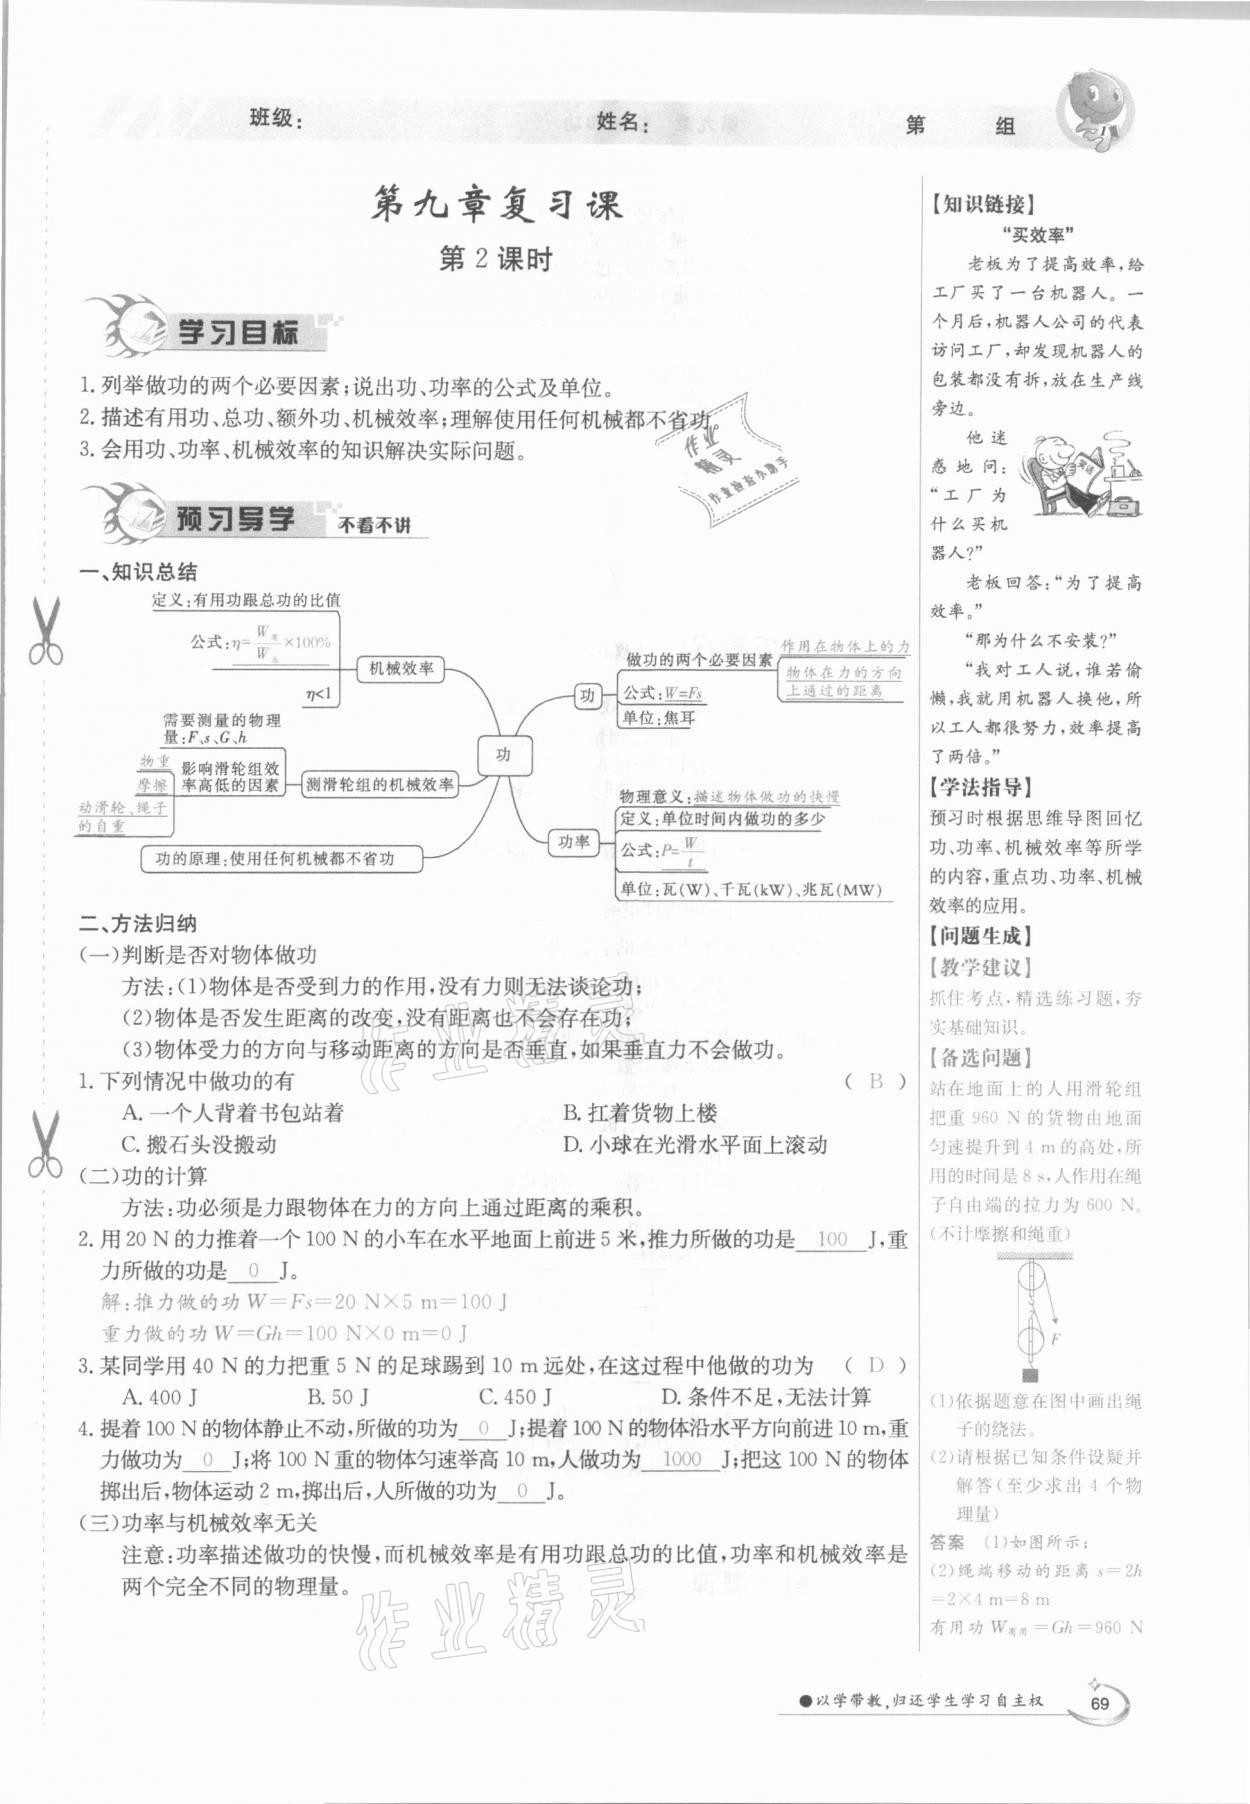 班级：
姓名：
第 组
第九章复习课
第2课时
学习目标
1. 列举做功的两个必要因素；说出功、功率的公式及单位。
2. 描述有用功、总功、额外功、机械效率；理解使用任何机械都不省功
3. 会用功、功率、机械效率的知识解决实际问题。
作业
精灵
作业检查小助手
预习导学 不看不讲
一、知识总结
定义：有用功跟总功的比值
公式：η=W有/W总×100%
η<1
机械效率
需要测量的物理
量：F、s、G、h
物重
摩擦
动滑轮、绳子
的自重
影响滑轮组效
率高低的因素
测滑轮组的机械效率
功的原理：使用任何机械都不省功
功
功
做功的两个必要因素
作用在物体上的力
物体在力的方向
上通过的距离
公式：W=Fs
单位：焦耳
功率
物理意义：描述物体做功的快慢
定义：单位时间内做功的多少
公式：P=W/t
单位：瓦(W)、千瓦(kW)、兆瓦(MW)
二、方法归纳
(一)判断是否对物体做功
方法：(1)物体是否受到力的作用，没有力则无法谈论功；
(2)物体是否发生距离的改变，没有距离也不会存在功；
(3)物体受力的方向与移动距离的方向是否垂直，如果垂直力不会做功。
1. 下列情况中做功的有 ( B )
A. 一个人背着书包站着 B. 扛着货物上楼
C. 搬石头没搬动 D. 小球在光滑水平面上滚动
(二)功的计算
方法：功必须是力跟物体在力的方向上通过距离的乘积。
2. 用 20 N 的力推着一个 100 N 的小车在水平地面上前进 5 米，推力所做的功是 100 J，重
力所做的功是 0 J。
解：推力做的功 W=Fs=20 N×5 m=100 J
重力做的功 W=Gh=100 N×0 m=0 J
3. 某同学用 40 N 的力把重 5 N 的足球踢到 10 m 远处，在这过程中他做的功为 ( D )
A. 400 J B. 50 J C. 450 J D. 条件不足，无法计算
4. 提着 100 N 的物体静止不动，所做的功为 0 J；提着 100 N 的物体沿水平方向前进 10 m，重
力做功为 0 J；将 100 N 重的物体匀速举高 10 m，人做功为 1000 J；把这 100 N 的物体
掷出后，物体运动 2 m，掷出后，人所做的功为 0 J。
(三)功率与机械效率无关
注意：功率描述做功的快慢，而机械效率是有用功跟总功的比值，功率和机械效率是
两个完全不同的物理量。
作业精灵
作业精灵
【知识链接】
“买效率”
老板为了提高效率，给
工厂买了一台机器人。一
个月后，机器人公司的代表
访问工厂，却发现机器人的
包装都没有拆，放在生产线
旁边。
他迷
惑地问：
“工厂为
什么买机
器人？”
笑话
老板回答：“为了提高
效率。”
“那为什么不安装？”
“我对工人说，谁若偷
懒，我就用机器人换他，所
以工人都很努力，效率提高
了两倍。”
【学法指导】
预习时根据思维导图回忆
功、功率、机械效率等所学
的内容，重点功、功率、机械
效率的应用。
【问题生成】
【教学建议】
抓住考点，精选练习题，夯
实基础知识。
【备选问题】
站在地面上的人用滑轮组
把重 960 N 的货物由地面
匀速提升到 4 m 的高处，所
用的时间是 8 s，人作用在绳
子自由端的拉力为 600 N。
(不计摩擦和绳重)
F
(1)依据题意在图中画出绳
子的绕法。
(2)请根据已知条件设疑并
解答(至少求出 4 个物
理量)
答案 (1)如图所示；
(2)绳端移动的距离 s=2h
=2×4 m=8 m
有用功 W有用=Gh=960 N
●以学带教，归还学生学习自主权
69